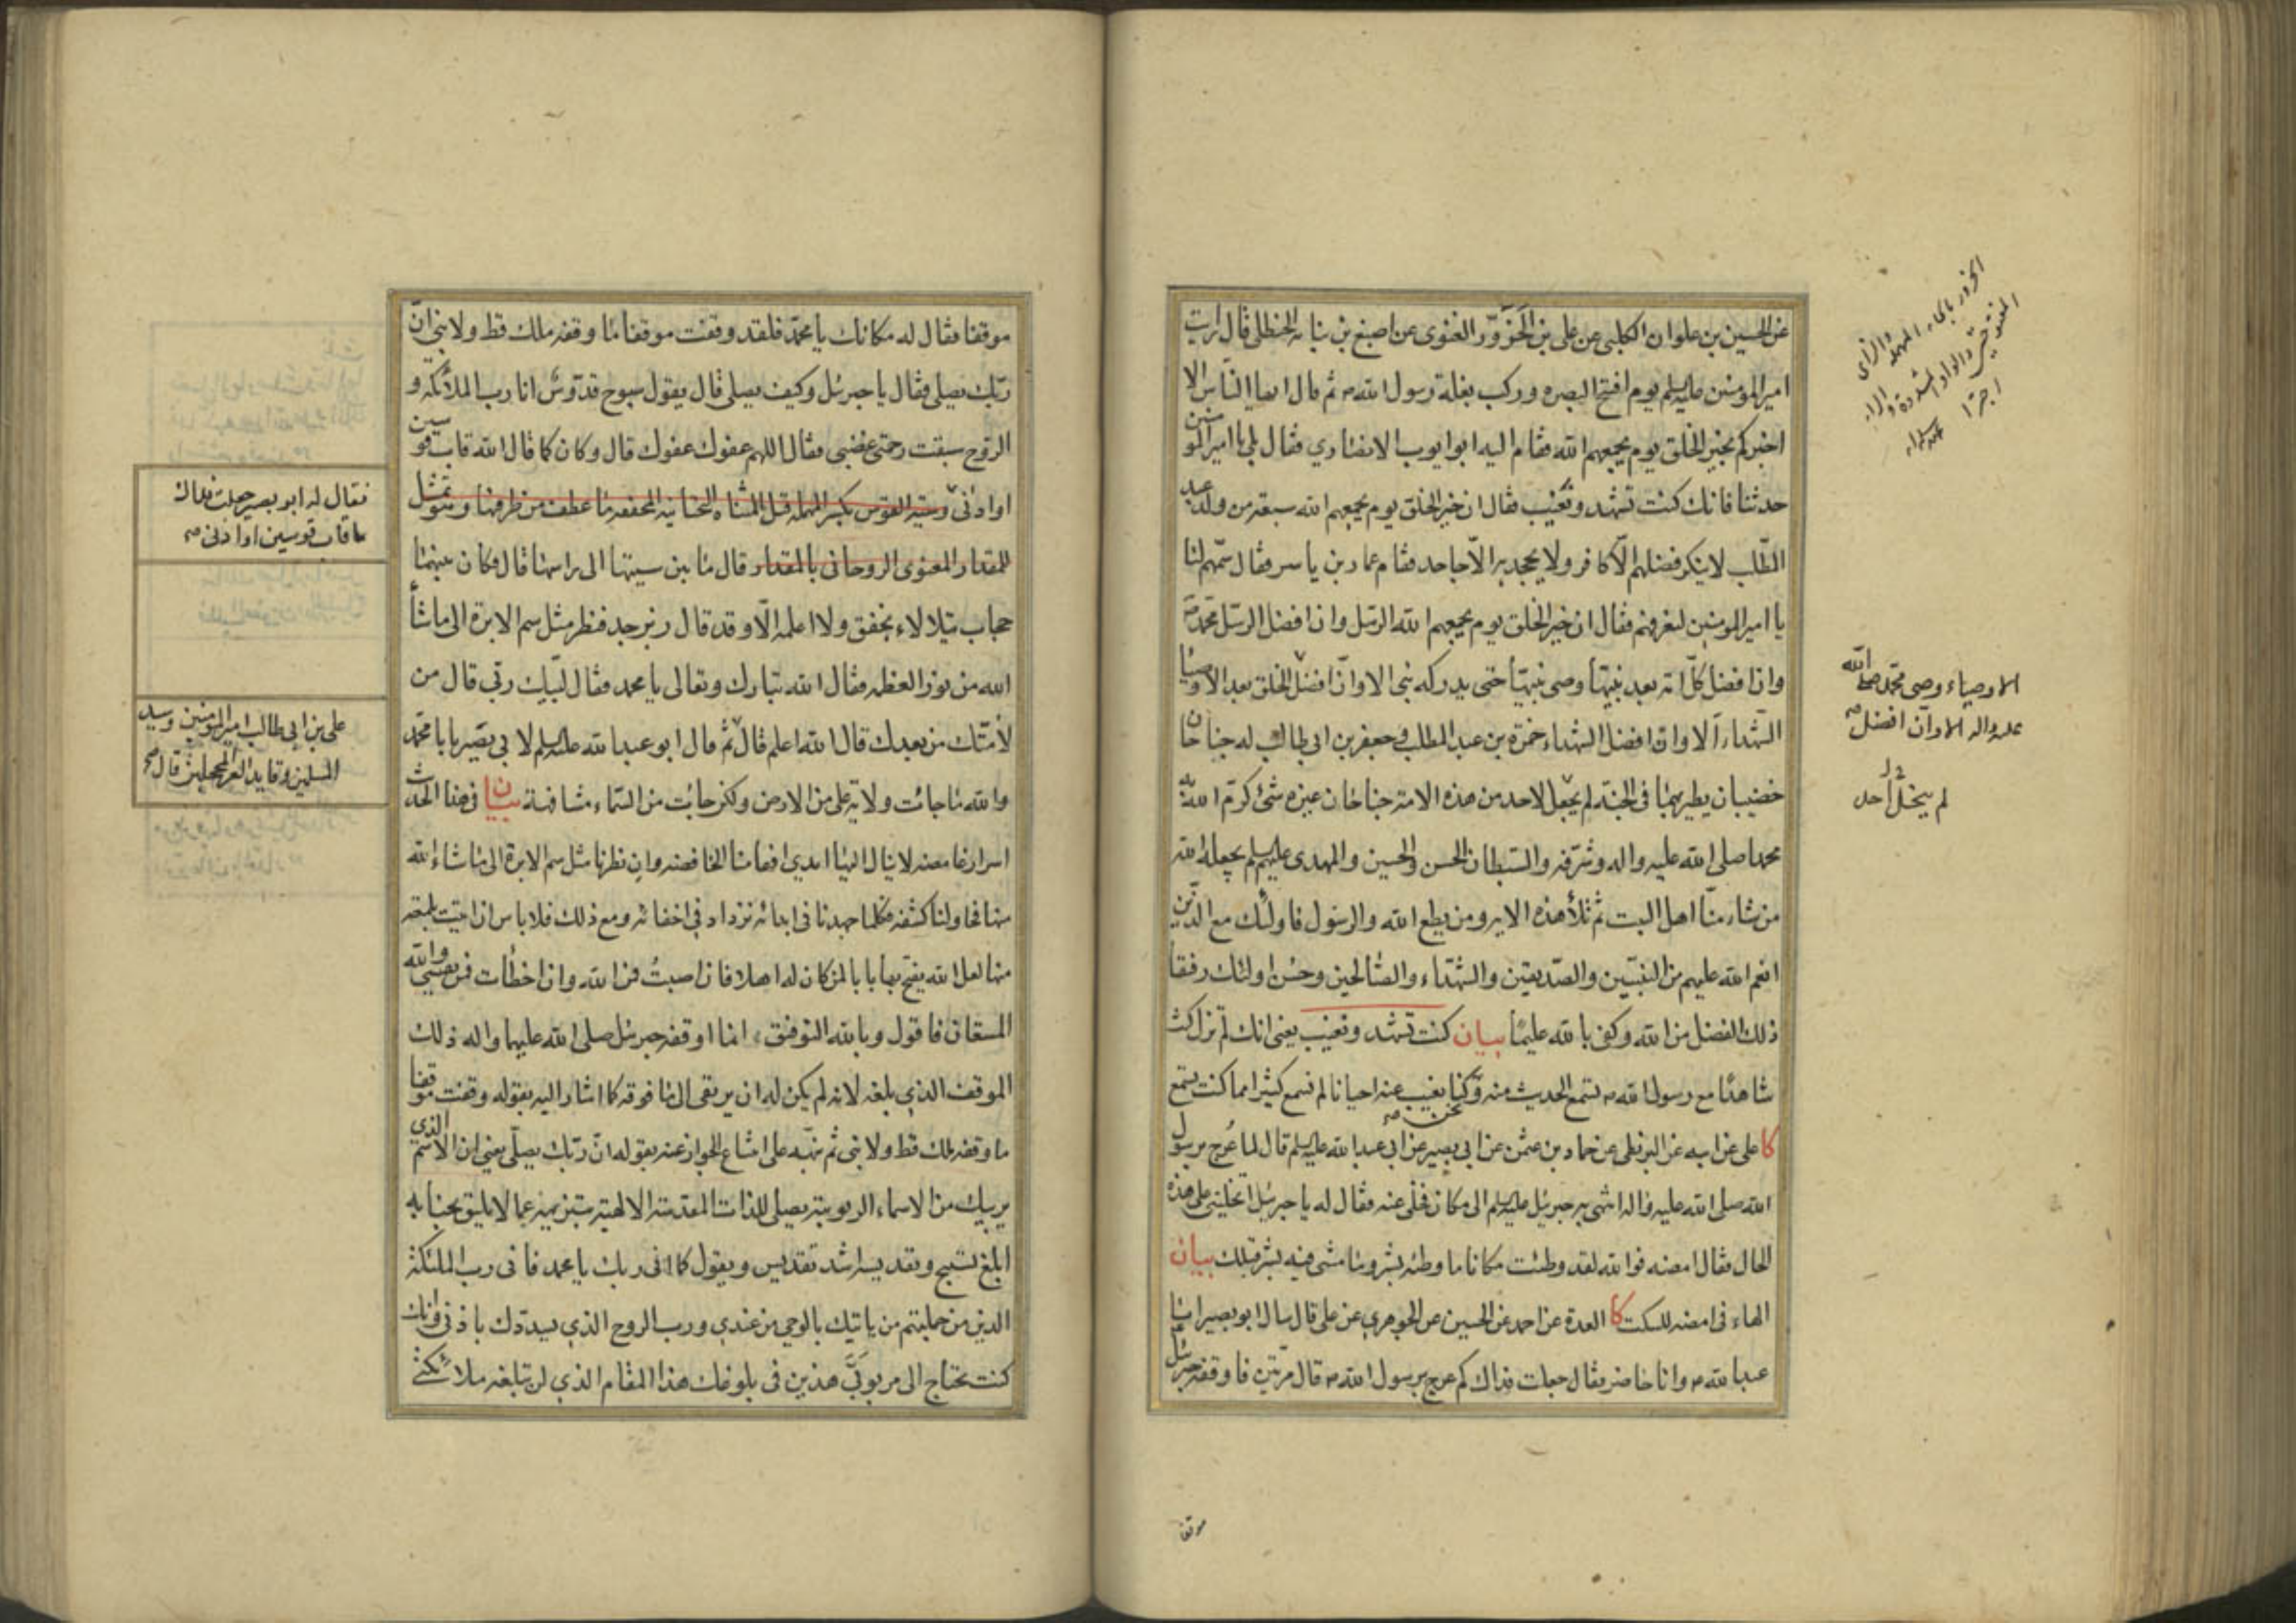 عن الحسين بن علوان الكلبى عن على بن الحَزَوَّر الغنوى عن اصبغ بن نباته الحنظلى قال رايت
امير المومنين عليه السلم يوم افتتح البصره وركب بغلة رسول الله ص ثم قال ايها الناس الا
اخبركم بخير الخلق يوم يجمعهم الله فقام اليه ابو ايوب الانصاري فقال بلى يا امير المومنين
حدثنا فانك كنت تشهد وتغيب فقال ان خير الخلق يوم يجمعهم الله سبعة من ولد عبد
المطّلب لا ينكر فضلهم الّا كافر ولا يجحد به الّا جاحد فقام عمار بن ياسر فقال سمّهم لنا
يا امير المومنين لنعرفهم فقال ان خير الخلق يوم يجمعهم الله الرسل وان افضل الرسل محمد ص
وان افضل كلّ امة بعد نبيّها وصى نبيّها حتى يدركه نبى الا وانّ افضل الخلق بعد الاوصيا
الشهداء الا وان افضل الشهداء حمزة بن عبد المطلب وجعفر بن ابى طالب له جناحان
خضيبان يطير بهما فى الجنة لم يجعل لاحد من هذه الامة جناحان غيره شئ كرّم الله به
محمدا صلى الله عليه واله وشرّفه والسبطان الحسن والحسين والمهدى عليهم السلم يجعله الله
من شاء منّا اهل البيت ثم تلا هذه الايه ومن يطع الله والرسول فاولئك مع الذين
انعم الله عليهم من النبيّين والصدّيقين والشهداء والصالحين وحسن اولئك رفيقا
ذلك الفضل من الله وكفى بالله عليمًا بيان كنت تشهد وتغيب يعنى انك لم تزل كنت
شاهدًا مع رسول الله ص تستمع الحديث منه وكنا نغيب عنه احيانا لم نسمع كثيرا مما كنت تسمع
نحن ص
كا على عن ابيه عن البزنطى عن حماد بن عثمن عن ابى بصير عن ابى عبد الله عليه السلم قال لما عُرج برسول
الله صلى الله عليه واله انتهى به جبرئيل عليه السلم الى مكان فخلّى عنه فقال له يا جبرئيل اتخلينى على هذه
الحال فقال امضه فوالله لقد وطئت مكانا ما وطئه بشر وما مشى فيه بشر قبلك بيان
الهاء فى امضه للسكت كا العدة عن احمد عن الحسين عن الجوهري عن على قال سال ابو بصير ابا
عبد الله ع وانا حاضر فقال جعلت فداك كم عرج برسول الله ص قال مرّتين فاوقفه جبرئيل
الحزور بالحاء المهملة والزاى
المفتوحتين والواو المشددة والراء
اخيرًا
الاوصياء وصى محمّد صلى الله
عليه واله الا وان افضل ص
لم ينحل احد
موقفا
موقفا فقال له مكانك يا محمّد فلقد وقفت موقفا ما وقفه ملك قط ولا نبى انّ
ربّك يصلى فقال يا جبرئيل وكيف يصلى قال يقول سبوح قدّوس انا رب الملائكة و
الروح سبقت رحمتى غضبى فقال اللهم عفوك عفوك قال وكان كما قال الله قاب قوسين
او ادنى وسية القوس بكسر المهملة قبل المثناه التحتانيه المخففه ما عطف من طرفيها وهو تمثيل
للمقدار المعنوى الروحانى بالمقدار قال ما بين سيتها الى راسها قال فكان بينهما
حجاب يتلالاء بخفق ولا اعلمه الّا وقد قال زبرجد فنظر مثل سم الابرة الى ما شأ
الله من نور العظمه فقال الله تبارك وتعالى يا محمد فقال لبّيك ربى قال من
لأمّتك من بعدك قال الله اعلم قال ثم قال ابو عبد الله عليه السلم لابى بصير يا با محمّد
والله ما جائت ولاية على من الارض ولكن جائت من السّماء مشافهة بيان فى هذا الحديث
اسرار غامضه لا ينال اليها ايدي افهامنا الخافضه وان نظرنا مثل سم الابرة الى ما شاء الله
منها فحاولنا كشفه فكلما جهدنا فى ابدائه نزداد فى اخفائه ومع ذلك فلا باس ان اتيت بلمعه
منها لعل الله يفتح بها بابا لمن كان له اهلا فان اصبتُ فمن الله وان اخطأت فمن نفسى والله
المستعان فاقول وبالله التوفيق انما اوقفه جبرئيل صلى الله عليهما واله ذلك
الموقف الذي بلغه لانه لم يكن له ان يرتقى الى ما فوقه كما اشار اليه بقوله وقفت موقفا
ما وقفه ملك قط ولا نبى ثم نبّه على امتناع الجواز عنه بقوله انّ ربّك يصلّى يعنى ان الاسم الذى
يربيك من الاسماء الربوبية يصلى للذات المقدسة الالهية بتنزيهه عما لا يليق بجنابه
ابلغ تسبيح وتقديسه اشد تقديس ويقول كما انى ربك يا محمد فانى رب الملئكة
الذين من جملتهم من ياتيك بالوحى من عندي ورب الروح الذي يسدّدك باذنى وانك
كنت تحتاج الى مربوبَىَّ هذين فى بلوغك هذا المقام الذي لن تبلغه ملائكتى
فقال له ابو بصير جعلت فداك
ما قاب قوسين او ادنى ص
على بن ابى طالب امير المومنين وسيد
المسلمين وقايد الغر المحجلين قال ص